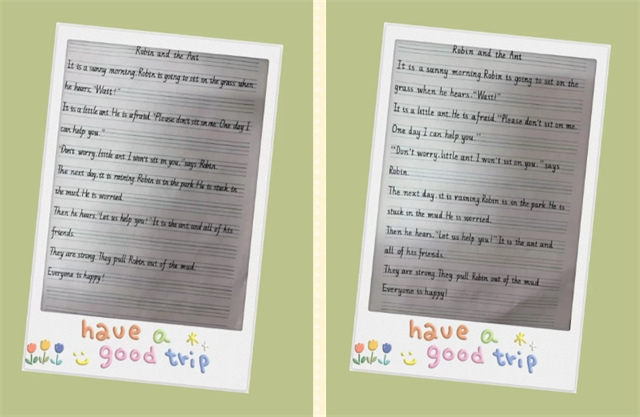 Robin and the Ant
It is a sunny morning. Robin is going to sit on the grass when
he hears, "Wait!"
It is a little ant. He is afraid. "Please don't sit on me. One day I
can help you."
"Don't worry, little ant. I won't sit on you," says Robin.
The next day, it is raining. Robin is in the park. He is stuck in
the mud. He is worried.
Then he hears, "Let us help you!" It is the ant and all of his
friends.
They are strong. They pull Robin out of the mud.
Everyone is happy!
have a
good trip
Robin and the Ant
It is a sunny morning. Robin is going to sit on the
grass when he hears, "Wait!"
It is a little ant. He is afraid. "Please don't sit on me.
One day I can help you."
"Don't worry, little ant. I won't sit on you," says
Robin.
The next day, it is raining. Robin is in the park. He is
stuck in the mud. He is worried.
Then he hears, "Let us help you!" It is the ant and
all of his friends.
They are strong. They pull Robin out of the mud.
Everyone is happy!
have a
good trip